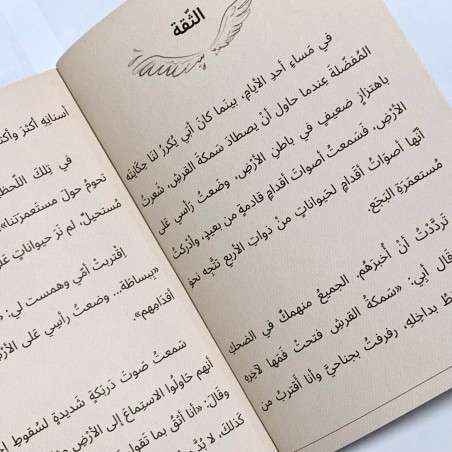 الثّقة
في مَساءِ أحدِ الأيامِ، بينَما كانَ أبي يُكرّرُ لنَا حِكايَته
المُفضّلةَ عِندما حاولَ أنْ يصطادَ سَمكةَ القرشِ، شَعرتُ
باهتزازٍ ضَعيفٍ في باطنِ الأرْضِ، وضَعتُ رَأسِي عَلى
الأرْضِ، فسَمعتُ أصواتَ أقدامٍ قادمةٍ من بعيدٍ، وأدرَكتُ
أنّها أصوَاتُ أقدامٍ لحَيواناتٍ منْ ذواتِ الأربعِ تتّجِه نحوَ
مُستعمَرَةِ البَجَعِ.
تَردّدْتُ أنْ أُخبرَهُم، الجميعُ منهمكٌ في الضحكِ
قالَ أبِي: «سَمكةُ القرشِ فتحتْ فمَها لآخِرِهِ
بداخِلِهِ. رفرفتُ بجناحيَّ وأنَا أقتربُ من
أسنانِهِ أكثرَ وأكثرَ
في تلكَ اللحظ
تحومُ حَولَ مستعمرَتنا»
مُستحيلٌ، لم نَر حيواناتٍ
اقتربتْ أمّي وهَمست لي:
«ببساطَة.. وضَعتُ رأسِي عَلى الأرْ
أقدَامِهِم».
سَمعتُ صَوتَ دَربكةٍ شَديدةٍ لسُقوطِ
أنهم حَاولُوا الاستِماعَ إلى الأرْضِ
وقالَ: «أنا أثقُ بما تَقولُ
كذلكَ، لا بُدّ